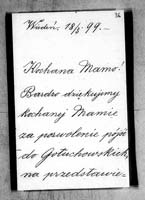 36
Wiedeń. 18/5. 99. —
Kochana Mamo!
Bardzo dziękujemy
kochanej Mamie
za pozwolenie pójść
do Gołuchowskich,
na przedstawie-